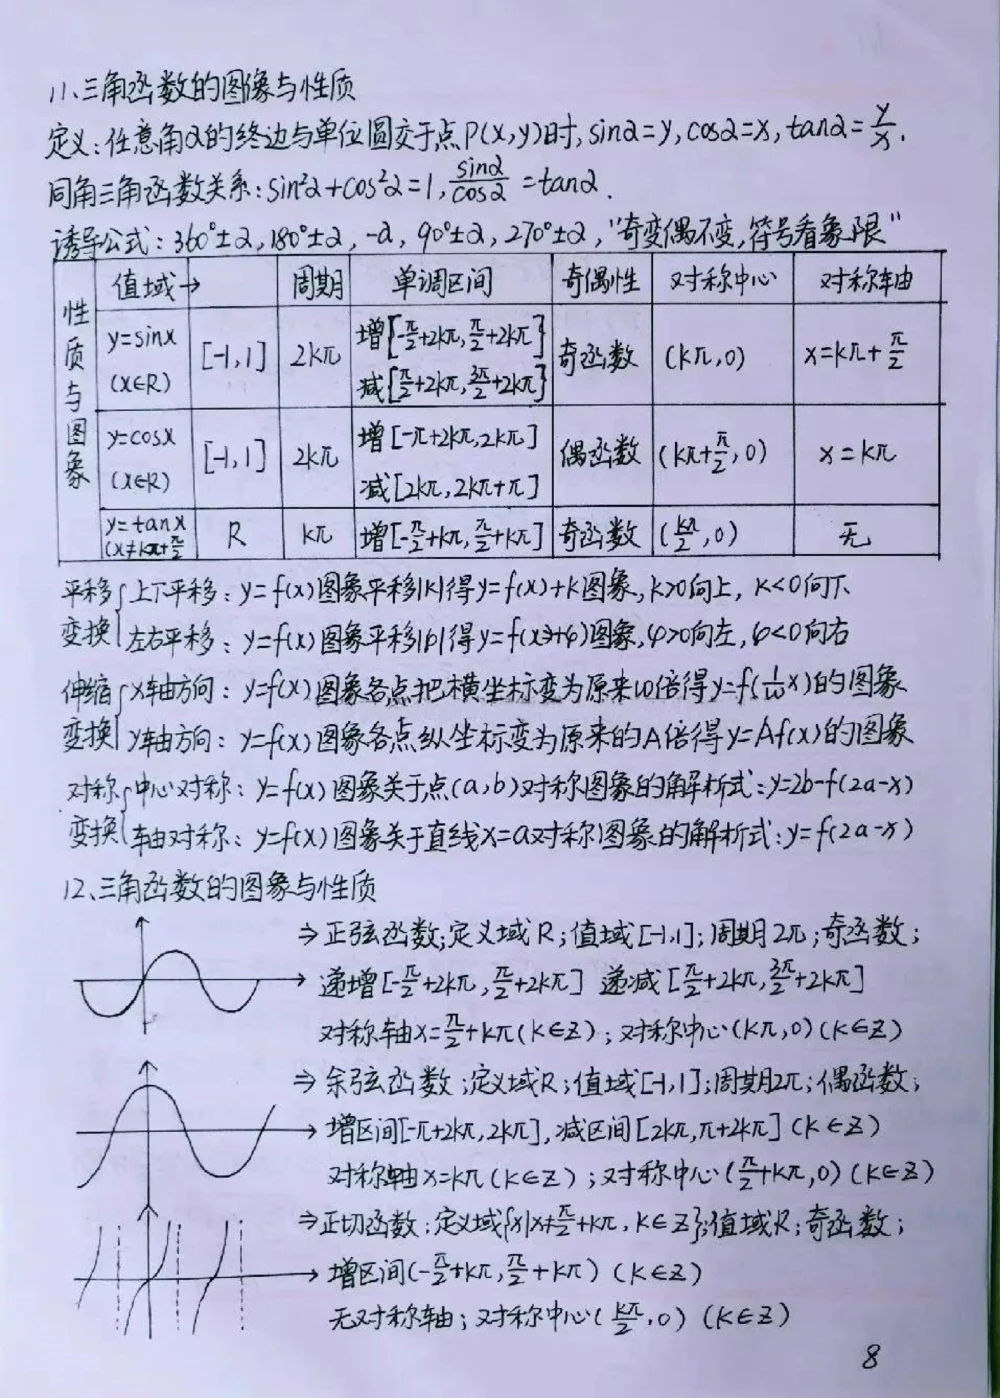 11、三角函数的图像与性质
定义:任意角α的终边与单位圆交于点P(x,y)时,sinα=y,cosα=x,tanα=y/x.
同角三角函数关系:sin²α+cos²α=1,sinα/cosα=tanα.
诱导公式:360°±α,180°±α,-α,90°±α,270°±α,"奇变偶不变,符号看象限"
性质与图象
值域→ 周期 单调区间 奇偶性 对称中心 对称轴
y=sinx (x∈R) [-1,1] 2kπ 增[-π/2+2kπ,π/2+2kπ] 减[π/2+2kπ,3π/2+2kπ] 奇函数 (kπ,0) x=kπ+π/2
y=cosx (x∈R) [-1,1] 2kπ 增[-π+2kπ,2kπ] 减[2kπ,2kπ+π] 偶函数 (kπ+π/2,0) x=kπ
y=tanx (x≠kπ+π/2 R kπ 增[-π/2+kπ,π/2+kπ] 奇函数 (kπ/2,0) 无
平移变换{上下平移:y=f(x)图象平移|k|得y=f(x)+k图象,k>0向上,k<0向下
左右平移:y=f(x)图象平移|φ|得y=f(x+φ)图象,φ>0向左,φ<0向右
伸缩变换{x轴方向:y=f(x)图象各点把横坐标变为原来ω倍得y=f(1/ω x)的图象
y轴方向:y=f(x)图象各点纵坐标变为原来的A倍得y=Af(x)的图象
对称变换{中心对称:y=f(x)图象关于点(a,b)对称图象的解析式:y=2b-f(2a-x)
轴对称:y=f(x)图象关于直线x=a对称图象的解析式:y=f(2a-x)
12、三角函数的图象与性质
⇒正弦函数;定义域R;值域[-1,1];周期2π;奇函数;
递增[-π/2+2kπ,π/2+2kπ] 递减[π/2+2kπ,3π/2+2kπ]
对称轴x=π/2+kπ(k∈Z);对称中心(kπ,0)(k∈Z)
⇒余弦函数;定义域R;值域[-1,1];周期2π;偶函数;
增区间[-π+2kπ,2kπ],减区间[2kπ,π+2kπ](k∈Z)
对称轴x=kπ(k∈Z);对称中心(π/2+kπ,0)(k∈Z)
⇒正切函数;定义域{x|x≠π/2+kπ,k∈Z};值域R;奇函数;
增区间(-π/2+kπ,π/2+kπ)(k∈Z)
无对称轴;对称中心(kπ/2,0)(k∈Z)
8